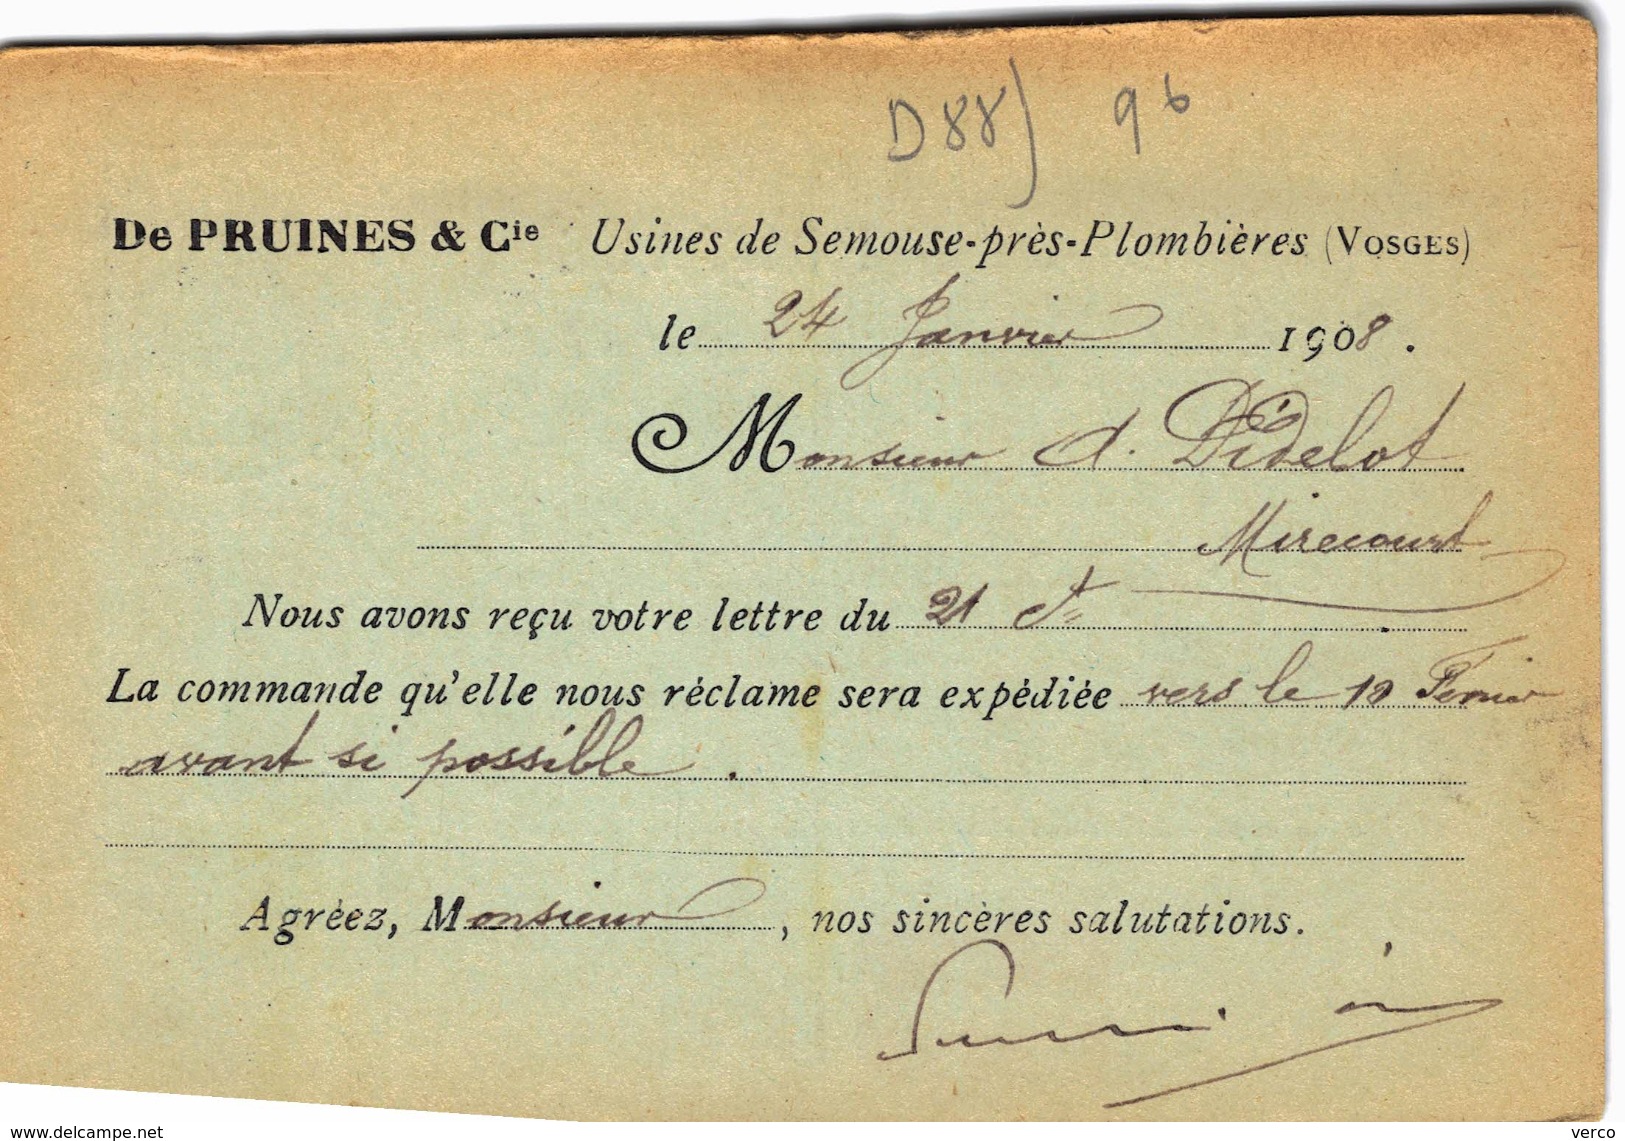 D88) 96
De PRUINES & Cie Usines de Semouse-près-Plombières (VOSGES)
le 24 Janvier 1908.
Monsieur A. Didelot
Mirecourt
Nous avons reçu votre lettre du 21 ct
La commande qu'elle nous réclame sera expédiée vers le 10 Février
avant si possible.
Agréez, Monsieur, nos sincères salutations.
www.delcampe.net
verco